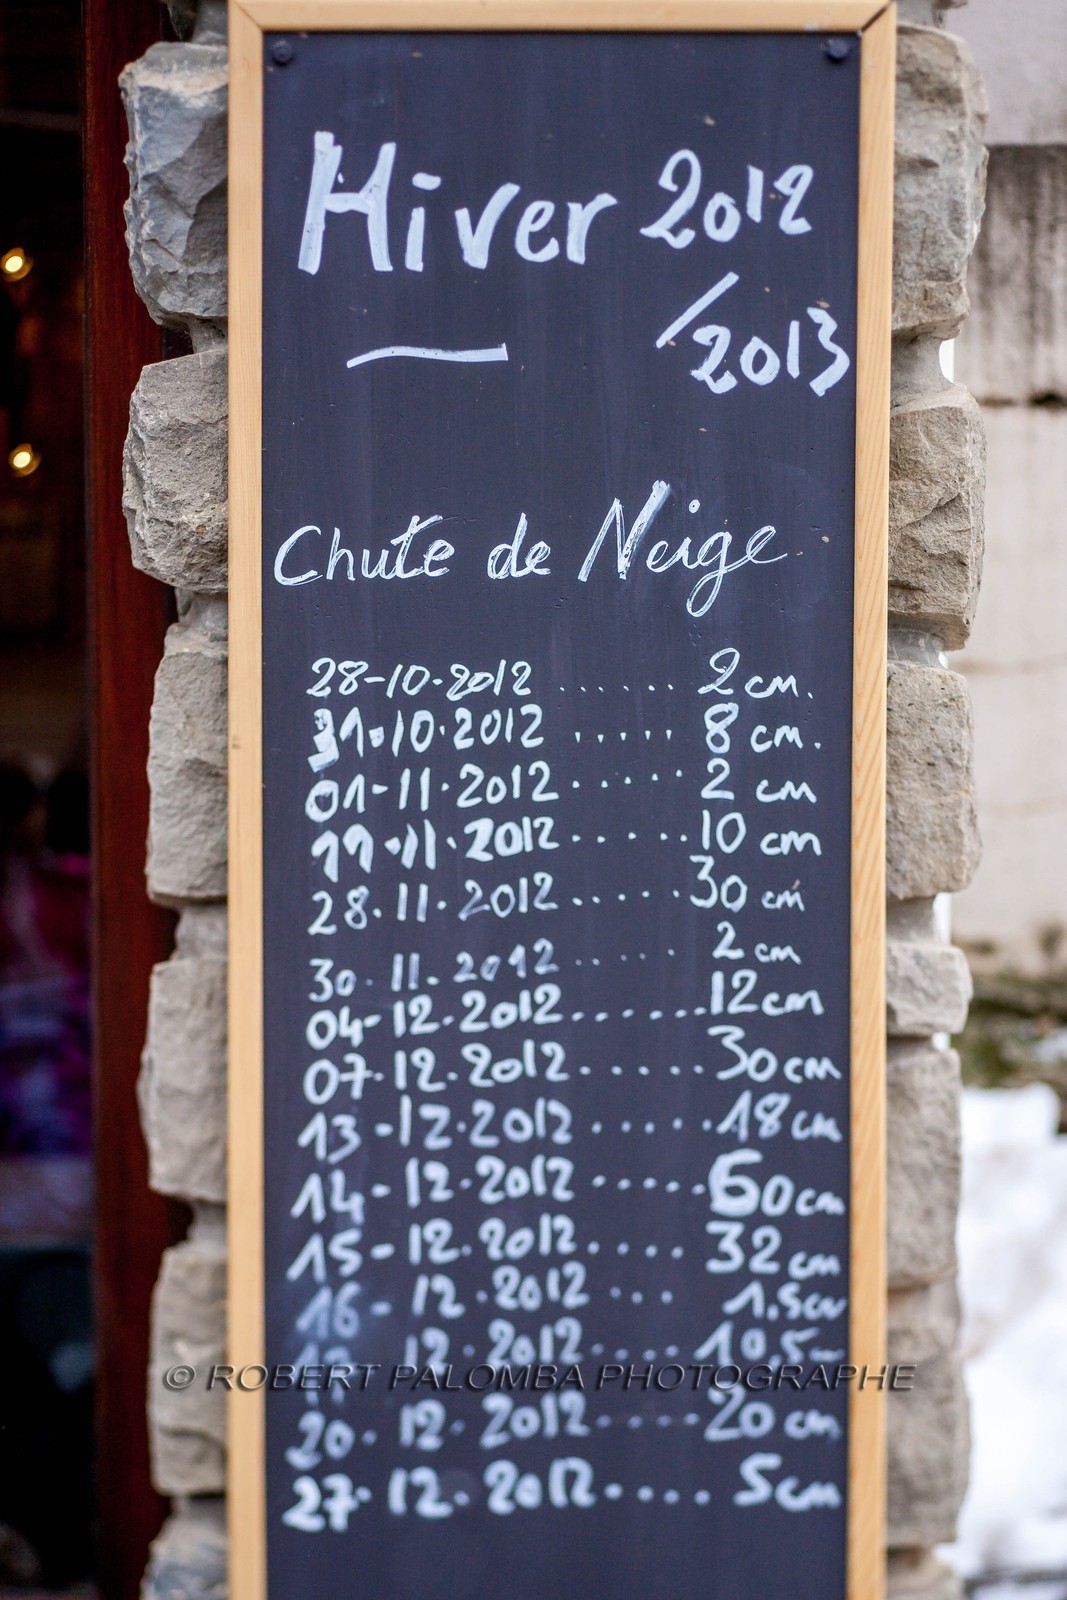 Hiver 2012
/2013
Chute de Neige
28-10-2012 ...... 2 cm.
31.10.2012 ..... 8 cm.
01-11.2012 ..... 2 cm
19.11.2012 ..... 10 cm
28.11.2012 ..... 30 cm
30.11.2012 ..... 2 cm
04-12.2012 ...... 12 cm
07-12.2012 ..... 30 cm
13-12.2012 ..... 18 cm
14-12.2012 ..... 60 cm
15-12.2012 .... 32 cm
16-12.2012 ... 1.5 cm
12.2012 .... 10.5
© ROBERT PALOMBA PHOTOGRAPHE
20.12.2012 .... 20 cm
27.12.2012 .... 5 cm